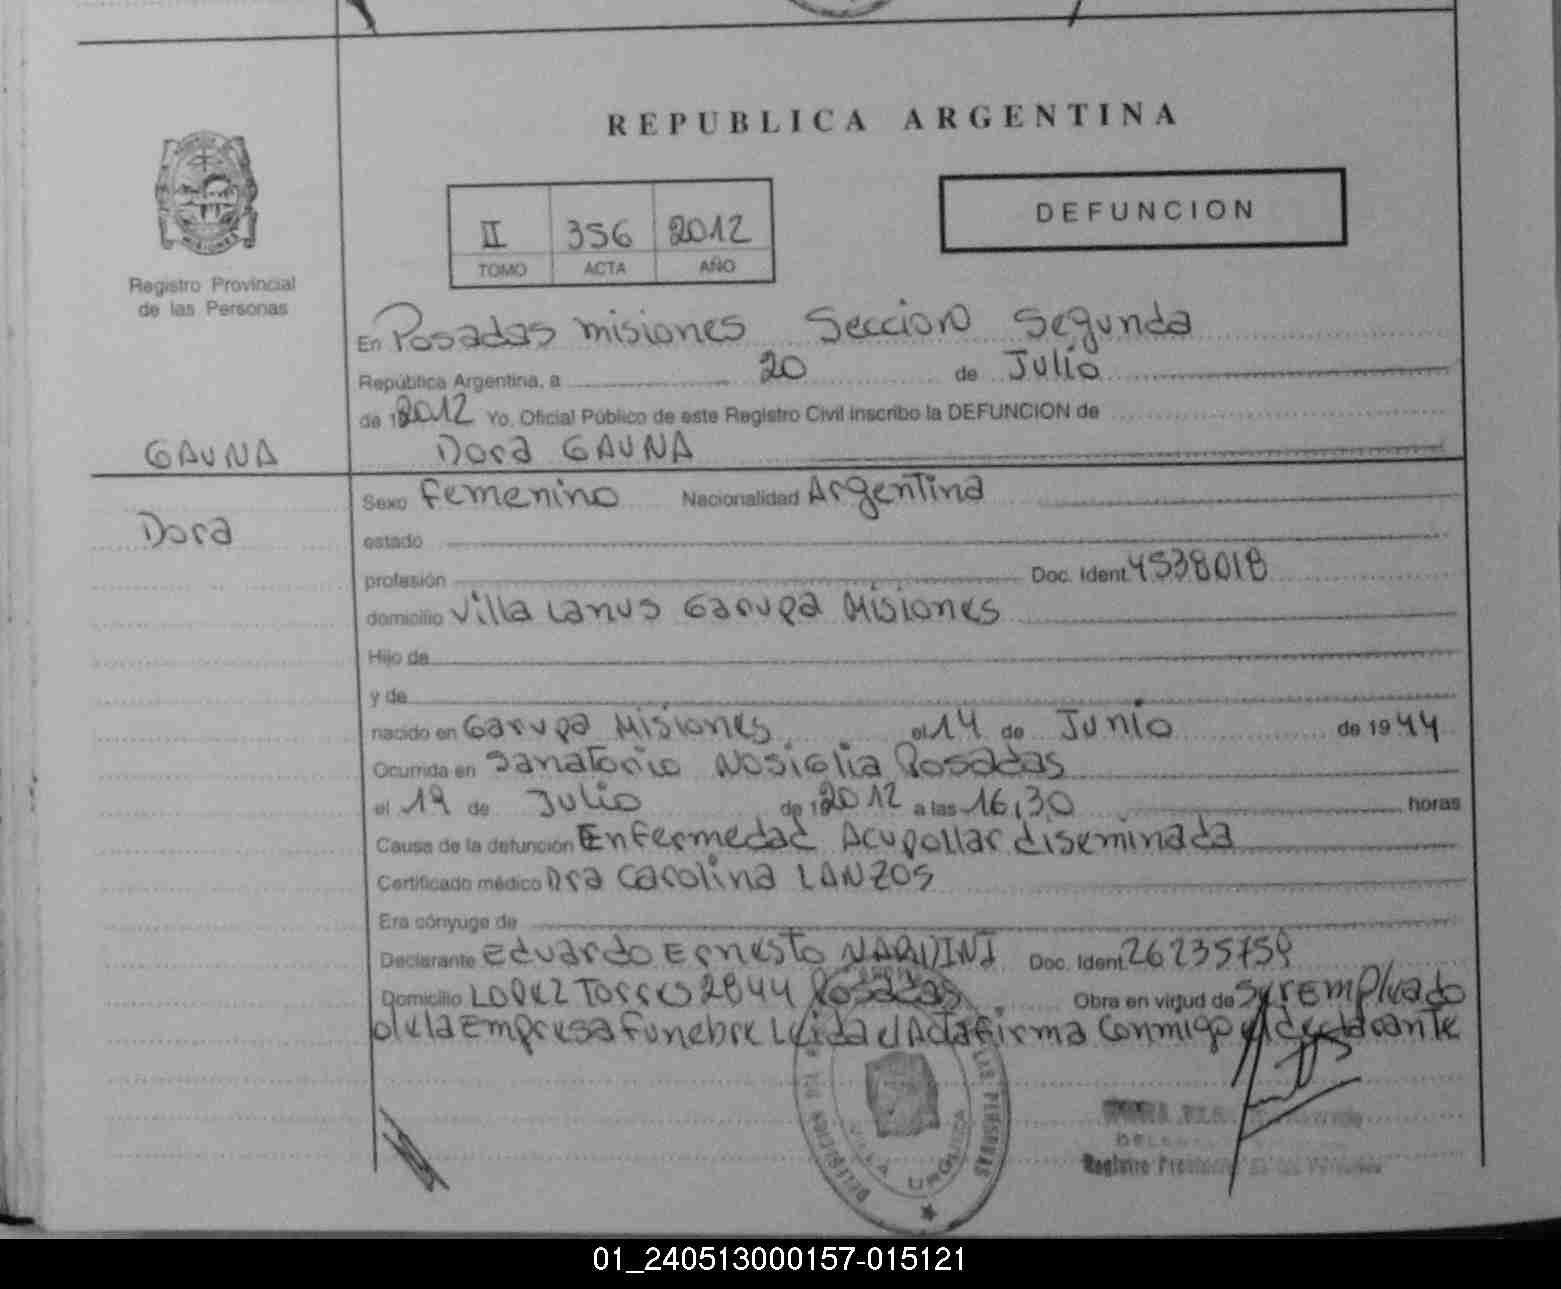 REPUBLICA ARGENTINA
II 356 2012
TOMO ACTA AÑO
DEFUNCION
Registro Provincial
de las Personas
En Posadas misiones Seccion Segunda
República Argentina, a 20 de Julio
de 2012 Yo, Oficial Público de este Registro Civil inscribo la DEFUNCION de
GAUNA
Dora GAUNA
Dora
Sexo Femenino Nacionalidad Argentina
estado
profesión Doc. Ident 4538018
domicilio Villa Lanus Garupa Misiones
Hijo de
y de
nacido en Garupa Misiones el 14 de Junio de 1944
Ocurrida en Sanatorio Nosiglia Posadas
el 19 de Julio de 2012 a las 16,30 horas
Causa de la defunción Enfermedad Acupollar diseminada
Certificado médico Dra Carolina LANZOS
Era cónyuge de
Declarante Eduardo Ernesto NARDINI Doc. Ident. 26235759
Domicilio Lopez Torres 2844 Posadas Obra en virtud de ser Empleado
de la Empresa Funebre Leida el Acta Firma Conmigo el declarante
DELEGACION
LAS PERSONAS
VILLA URQUIZA
Registro
01_240513000157-015121